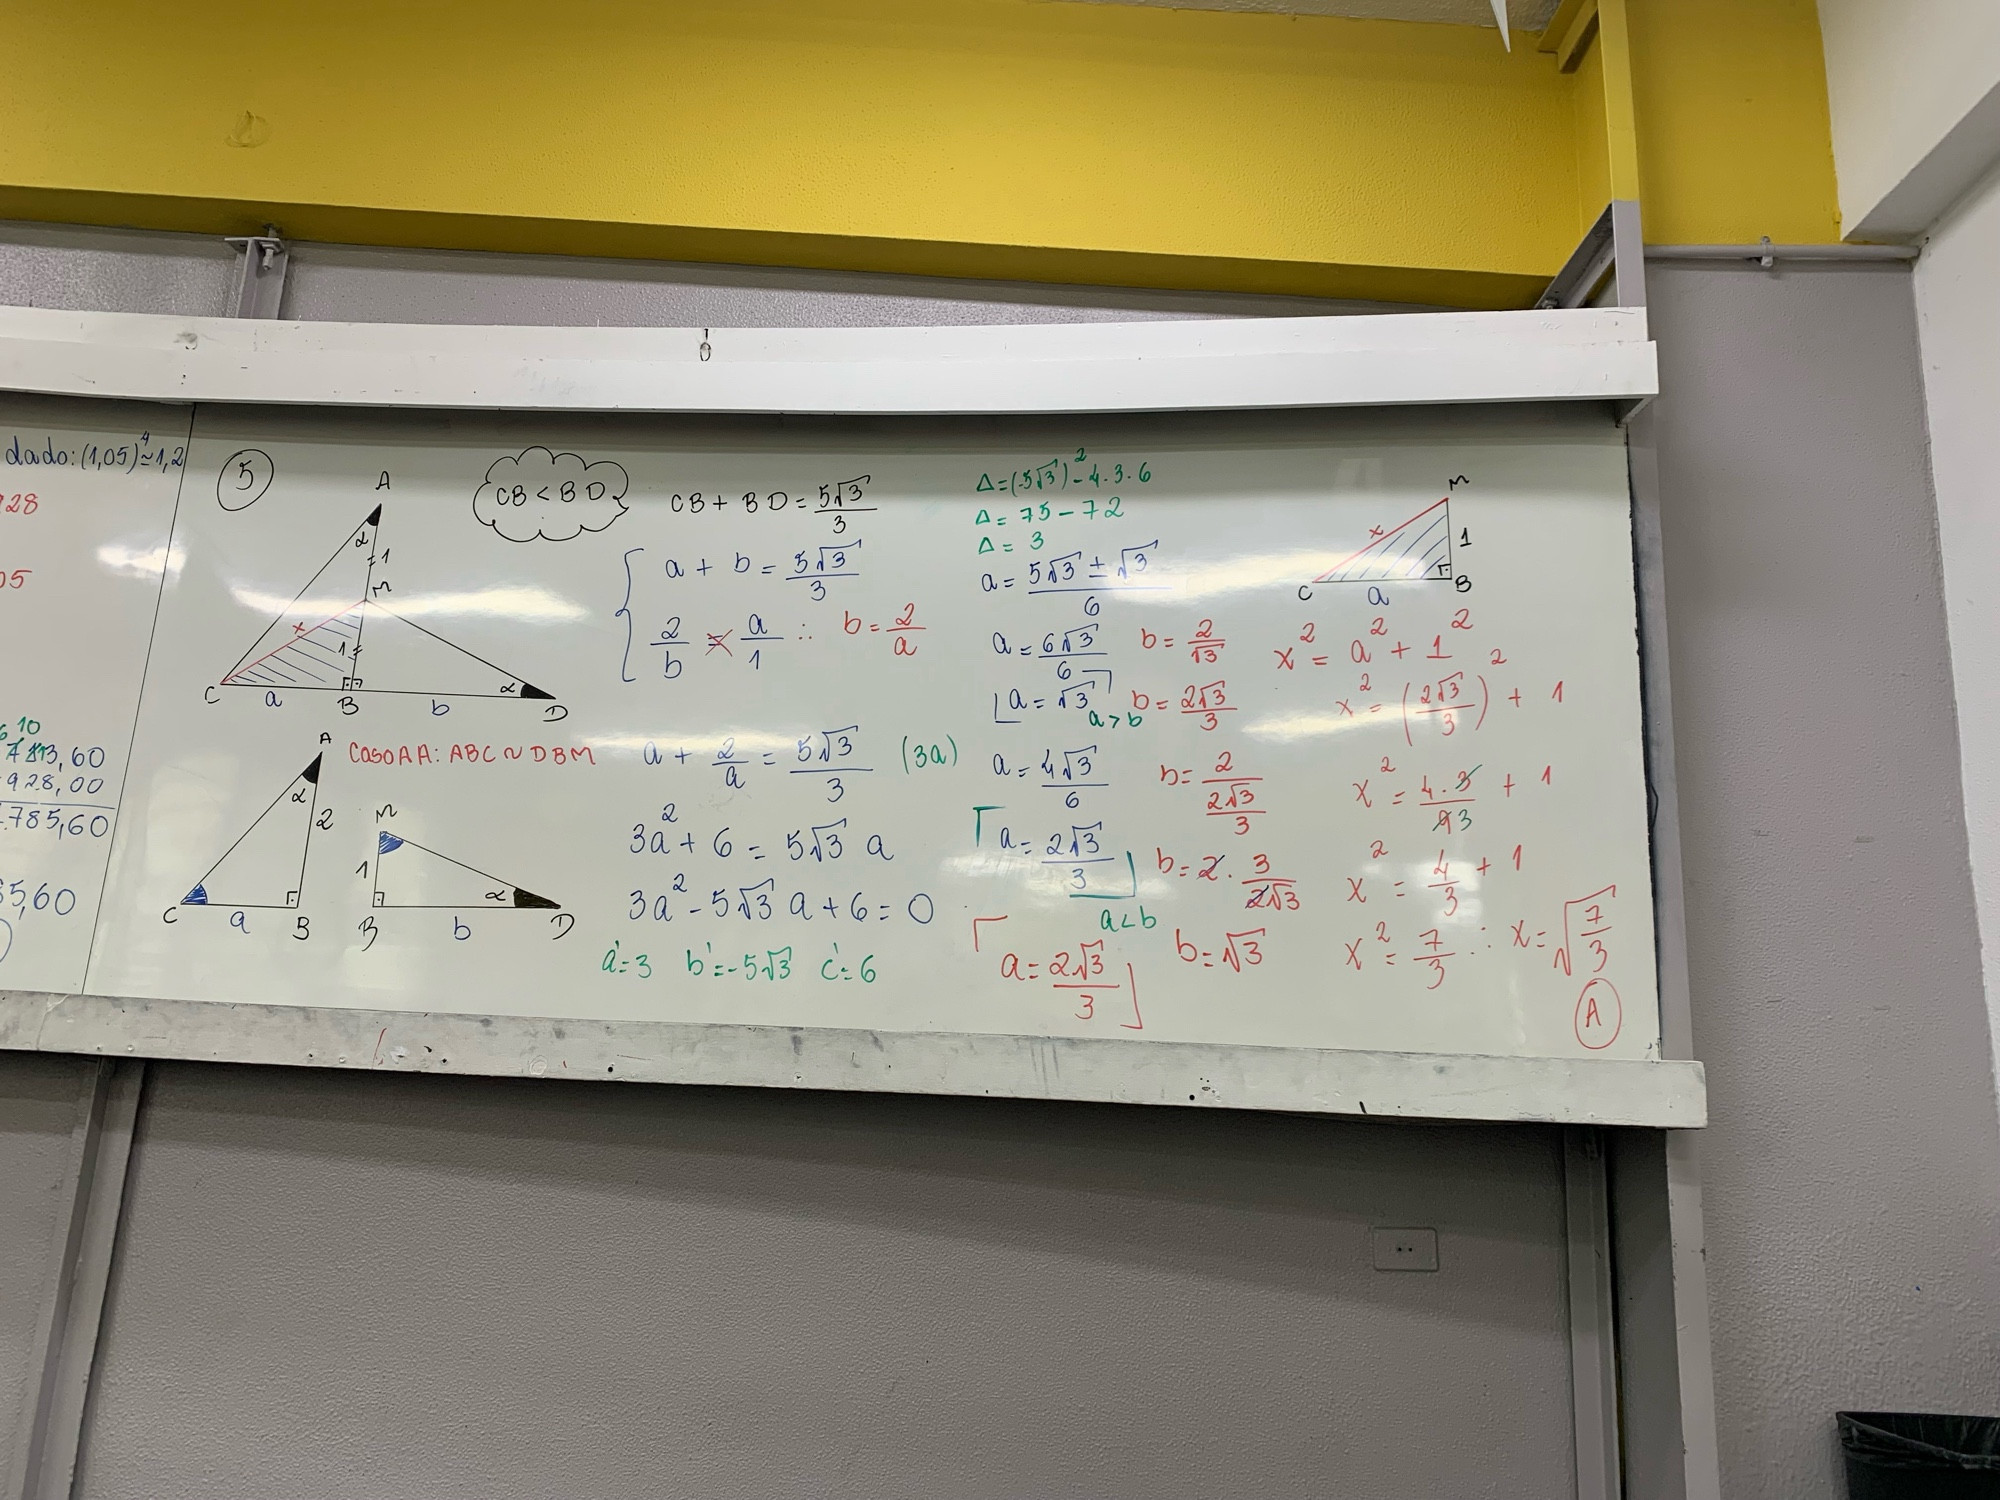 dado: (1,05)⁴ ≃ 1,2
928,00
785,60
5,60
5
A
α
1
M
x
1
C
a
B
b
α
D
CB < BD
CB + BD = 5√3/3
a + b = 5√3/3
2/b = a/1 ∴ b = 2/a
A
α
2
C
a
B
Caso AA: ABC ~ DBM
M
1
B
b
α
D
a + 2/a = 5√3/3 (3a)
3a² + 6 = 5√3 a
3a² - 5√3 a + 6 = 0
a' = 3 b' = -5√3 c' = 6
Δ = (-5√3)² - 4.3.6
Δ = 75 - 72
Δ = 3
a = 5√3 ± √3/6
a = 6√3/6 b = 2/√3
a = √3 b = 2√3/3
a > b
a = 4√3/6 b = 2/(2√3/3)
a = 2√3/3 b = 2 . 3/2√3
a < b
a = 2√3/3 b = √3
M
x
1
C
a
B
x² = a² + 1²
x² = (2√3/3)² + 1
x² = 4.3/93 + 1
x² = 4/3 + 1
x² = 7/3 ∴ x = √7/3
A